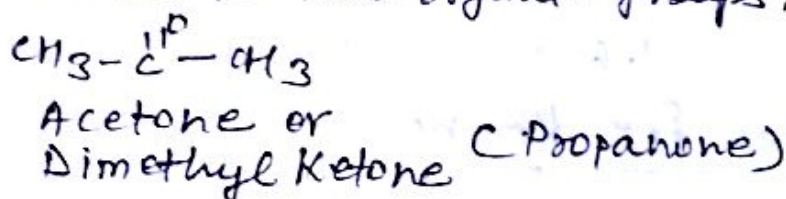 O
CH3-C-CH3
Acetone or
Dimethyl Ketone (Propanone)